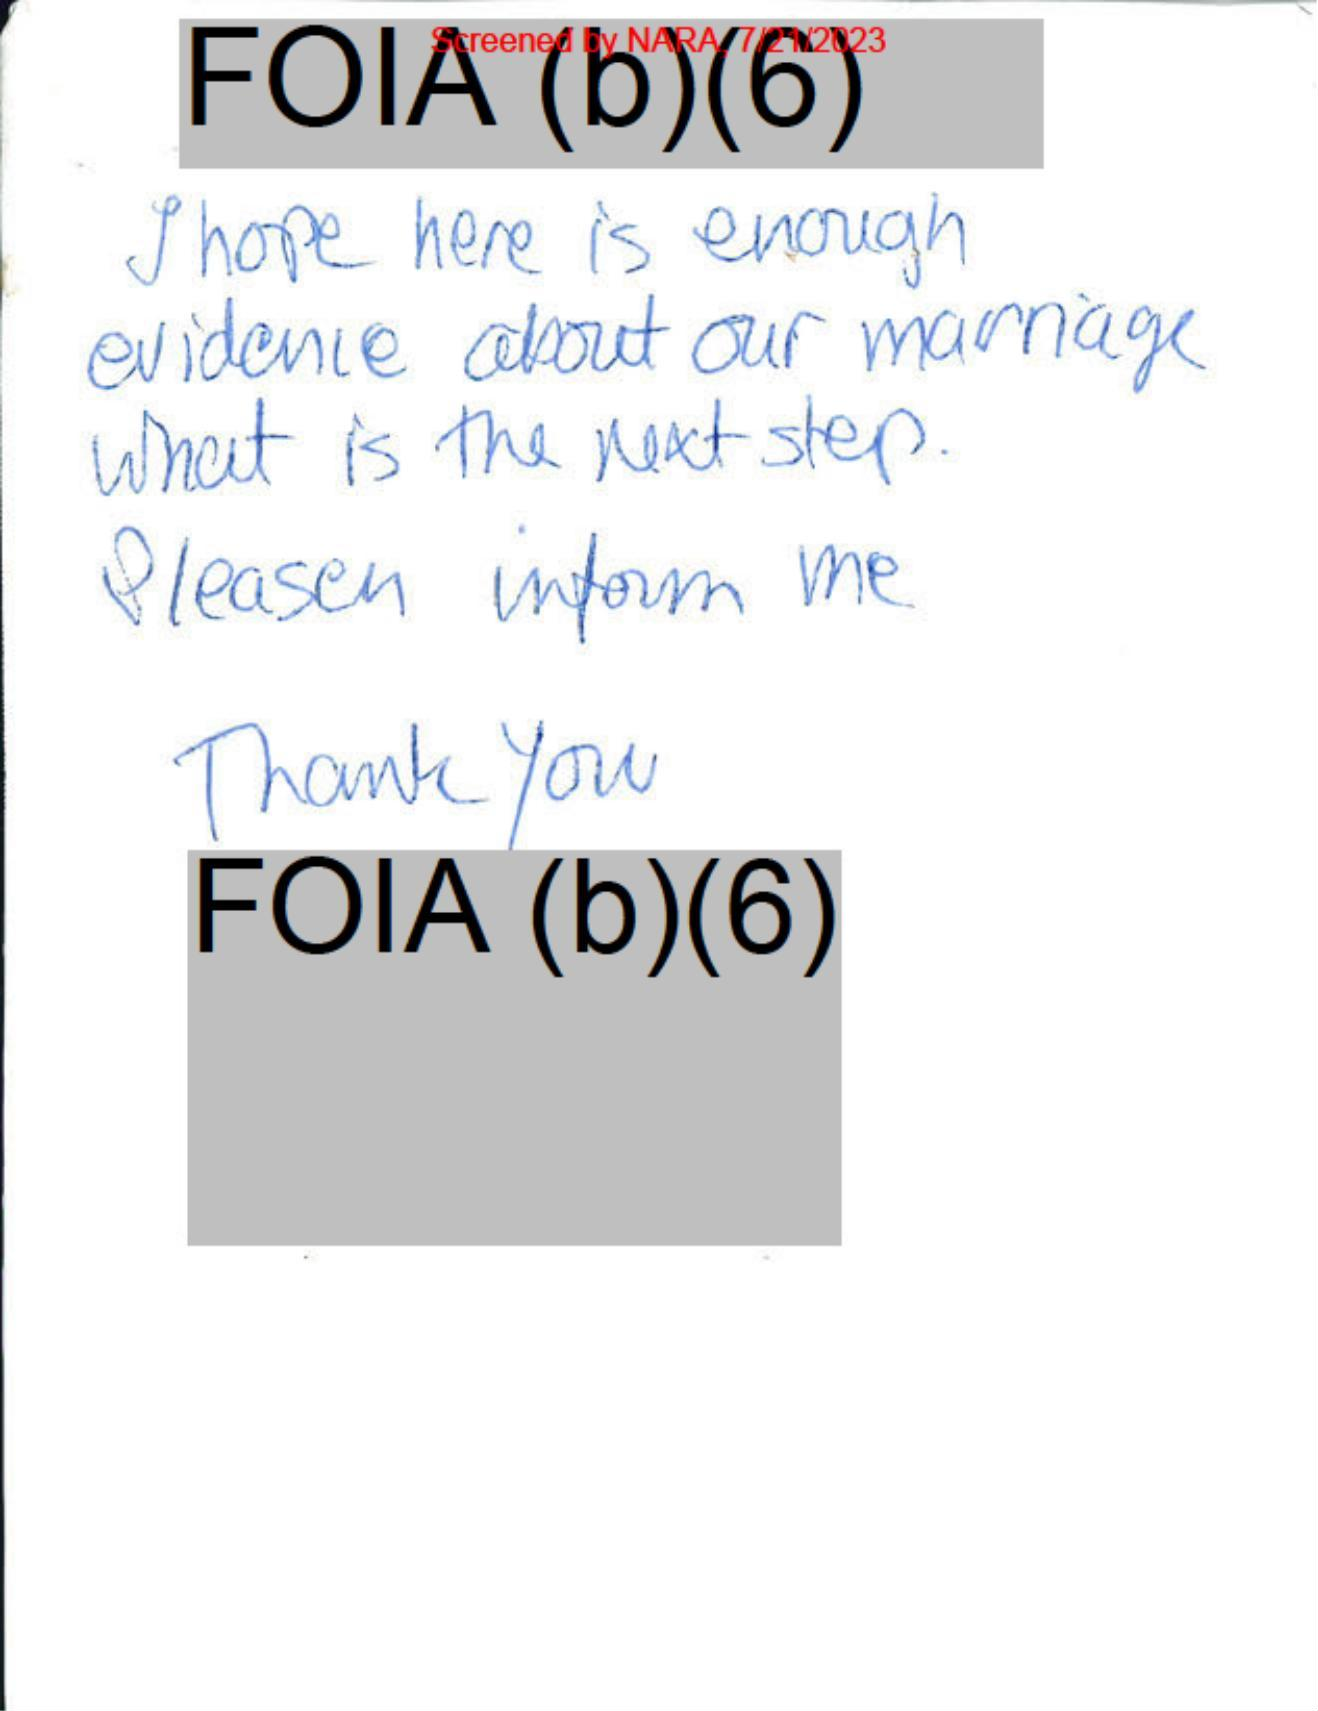 Screened by NARA, 7/21/2023
FOIA (b)(6)
I hope here is enough
evidence about our marriage
what is the next step.
Pleasen inform me
Thank You
FOIA (b)(6)